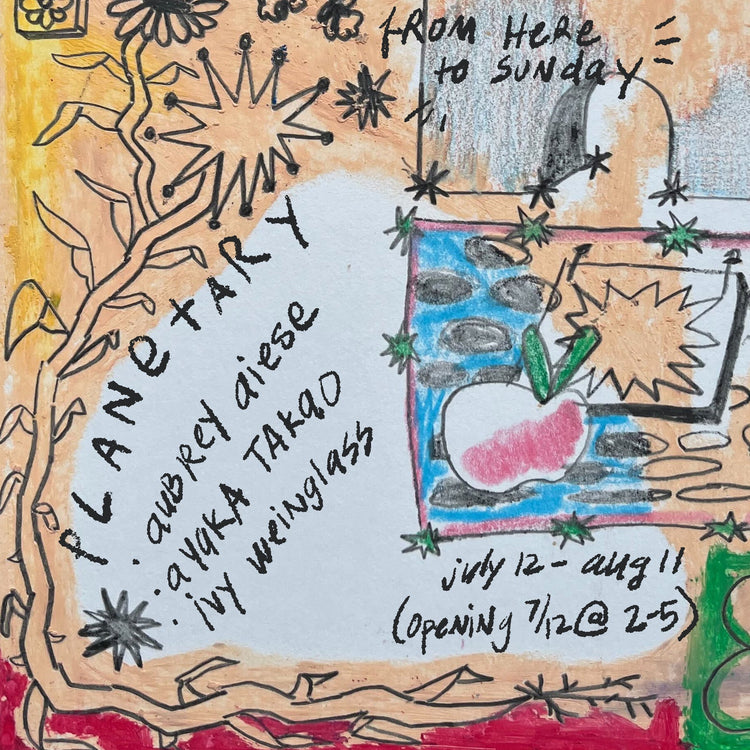 FROM HERE
to SUNday
PLANetARY
. aubrey aiese
. ayaka TAKaO
. ivy weinglass
july 12 - aug 11
(opening 7/12 @ 2-5)